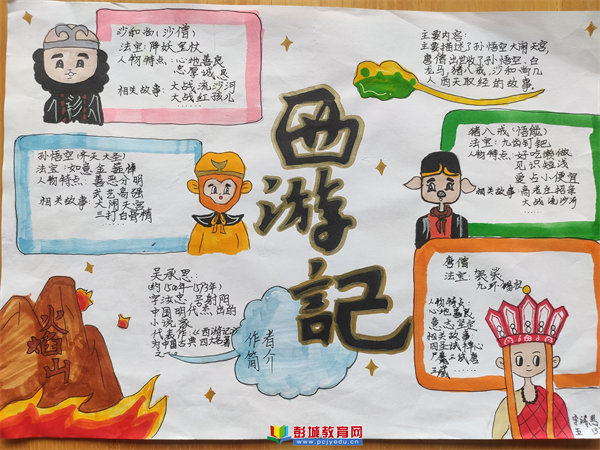 沙和尚(沙僧)
法宝:降妖宝杖
人物特点:心地善良
忠厚诚恳
相关故事:大战流沙河
大战红孩儿
主要内容:
主要描述了孙悟空大闹天宫,
唐僧出世收了孙悟空、白
龙马,猪八戒,沙和尚几
人西天取经的故事
孙悟空(齐天大圣)
法宝:如意金箍棒
人物特点:善恶分明
武艺高强
相关故事:大闹天宫
三打白骨精
……
西游記
猪八戒(悟能)
法宝:九齿钉耙
人物特点:好吃懒做
见识短浅
爱占小便宜
相关故事:高老庄招亲
大战流沙河
……
吴承恩:
字汝忠,号射阳
中国明代杰出的
小说家
代表作:《西游记》
为中国古典四大名著
之一
作者
简介
火焰山
唐僧
法宝:袈裟
九环锡杖
人物特点:
心地善良
意志坚定
相关故事:
彭城教育网
www.pcjyedu.cn